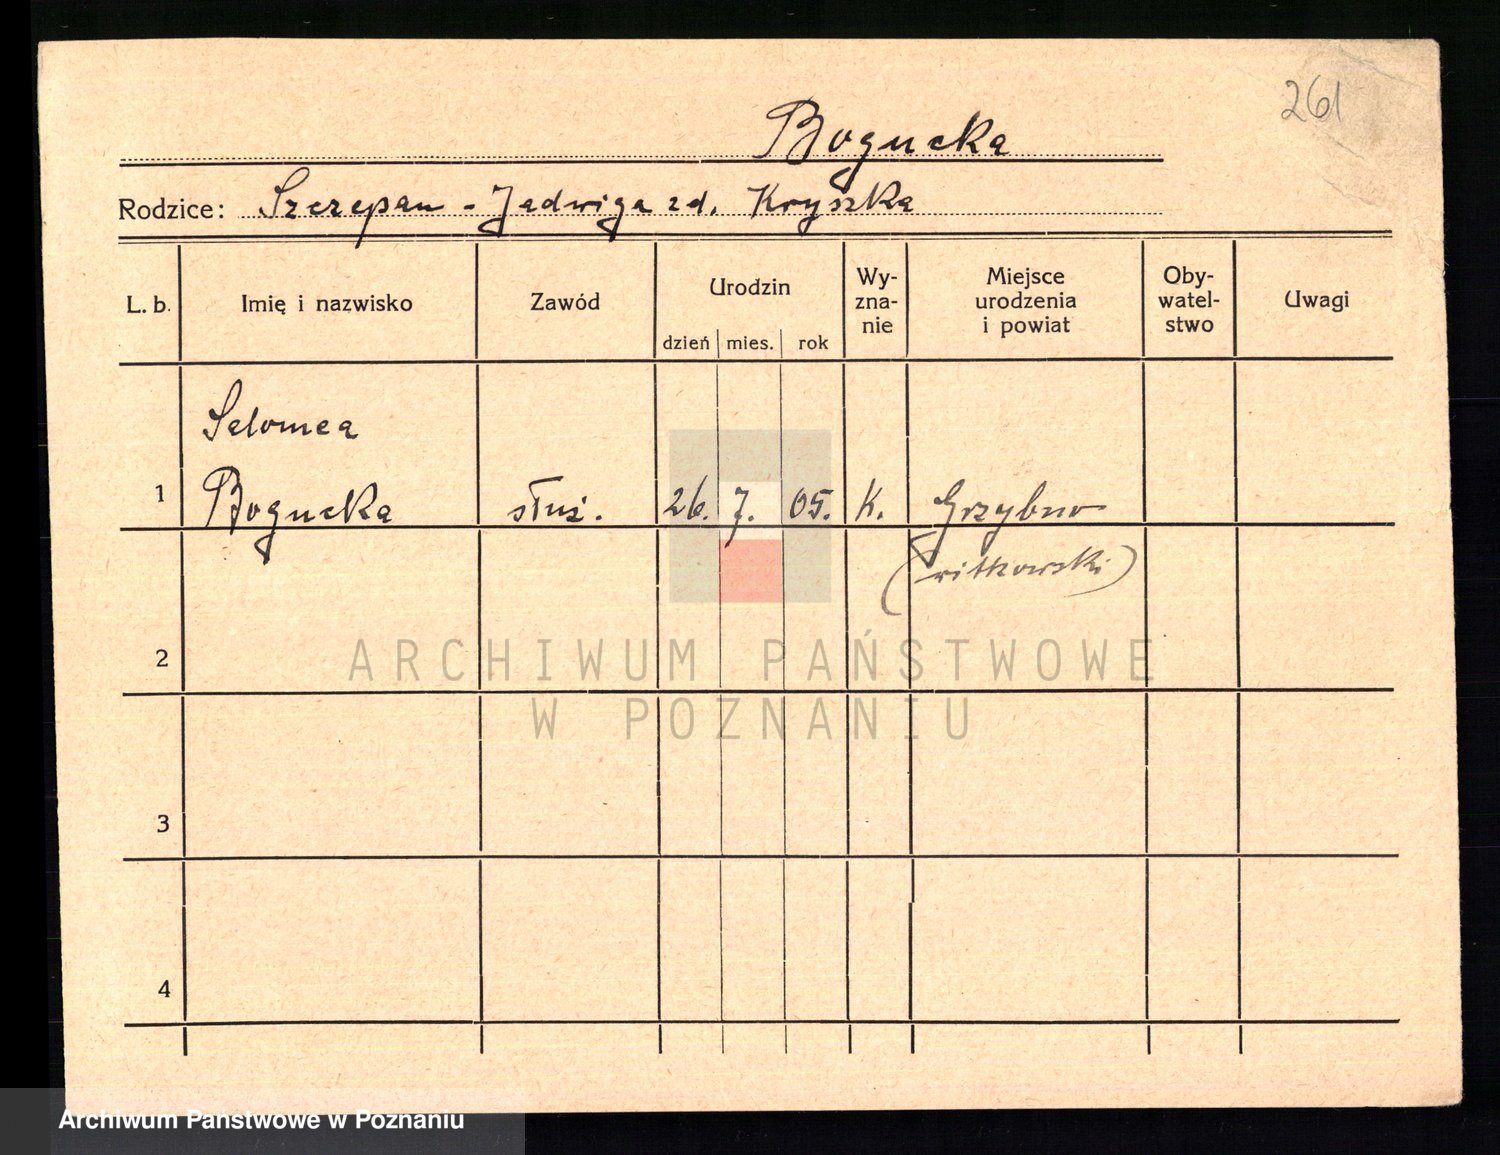 261
Bogucka
Rodzice: Szczepan - Jadwiga zd. Kryszka
L. b. Imię i nazwisko Zawód Urodzin dzień mies. rok Wy-zna-nie Miejsce urodzenia i powiat Oby-watel-stwo Uwagi
Salomea
1 Bogucka służ. 26. 7. 05. K. Grzybno
(witkowski)
2
ARCHIWUM PAŃSTWOWE
W POZNANIU
3
4
Archiwum Państwowe w Poznaniu